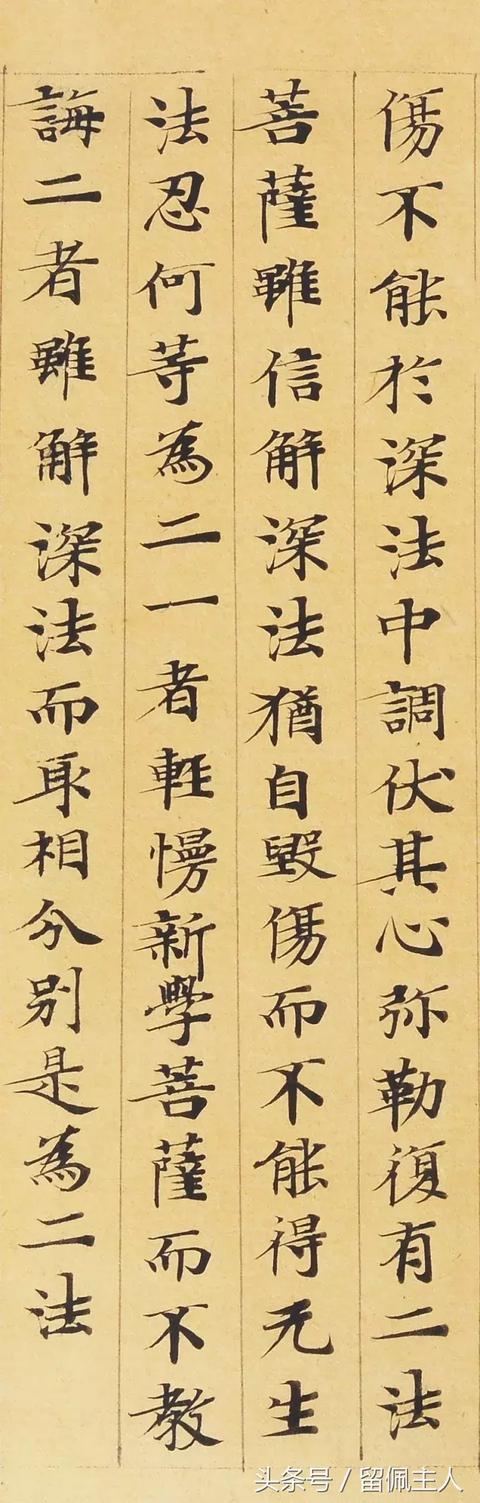 傷不能於深法中調伏其心弥勒復有二法
菩薩雖信解深法猶自毀傷而不能得无生
法忍何等為二一者輕慢新學菩薩而不教
誨二者雖解深法而取相分別是為二法
头条号 / 留佩主人